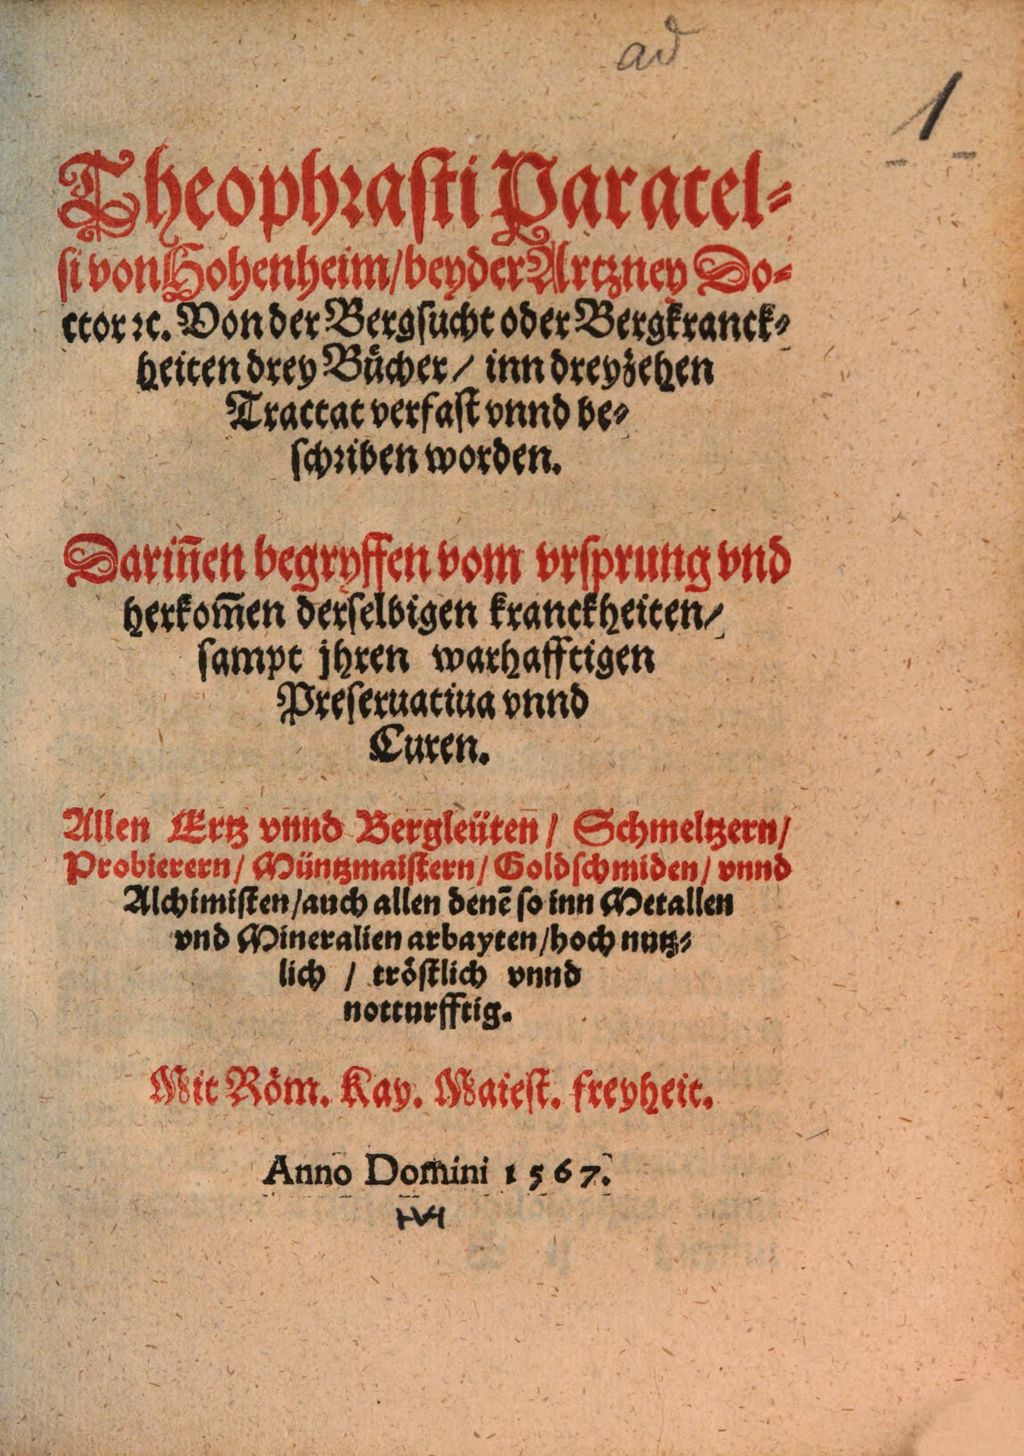 ad
1
Theophrasti Paracel-
si von Hohenheim / beyder Artzney Do-
ctor ꝛc. Von der Bergsucht oder Bergkranck-
heiten drey Bücher / inn dreyzehen
Tractat verfast vnnd be-
schriben worden.
Dariñen begryffen vom vrsprung vnd
herkom̃en derselbigen kranckheiten /
sampt jhren warhafftigen
Preseruatiua vnnd
Curen.
Allen Ertz vnnd Bergleüten / Schmeltzern /
Probierern / Müntzmaistern / Goldschmiden / vnnd
Alchimisten / auch allen denẽ so inn Metallen
vnd Mineralien arbayten / hoch nutz-
lich / tröstlich vnnd
notturfftig.
Mit Röm. Kay. Maiest. freyheit.
Anno Domini 1567.